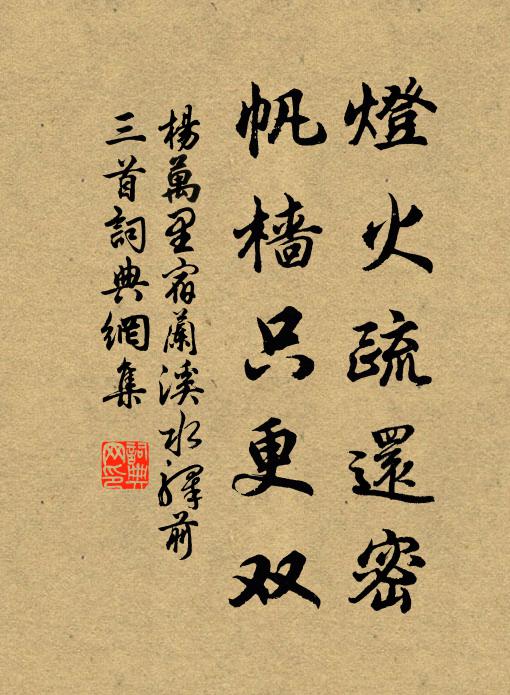 燈火疏還密
帆檣只更双
楊萬里宿蘭溪水驛前
三首詞典網集
詞典网印